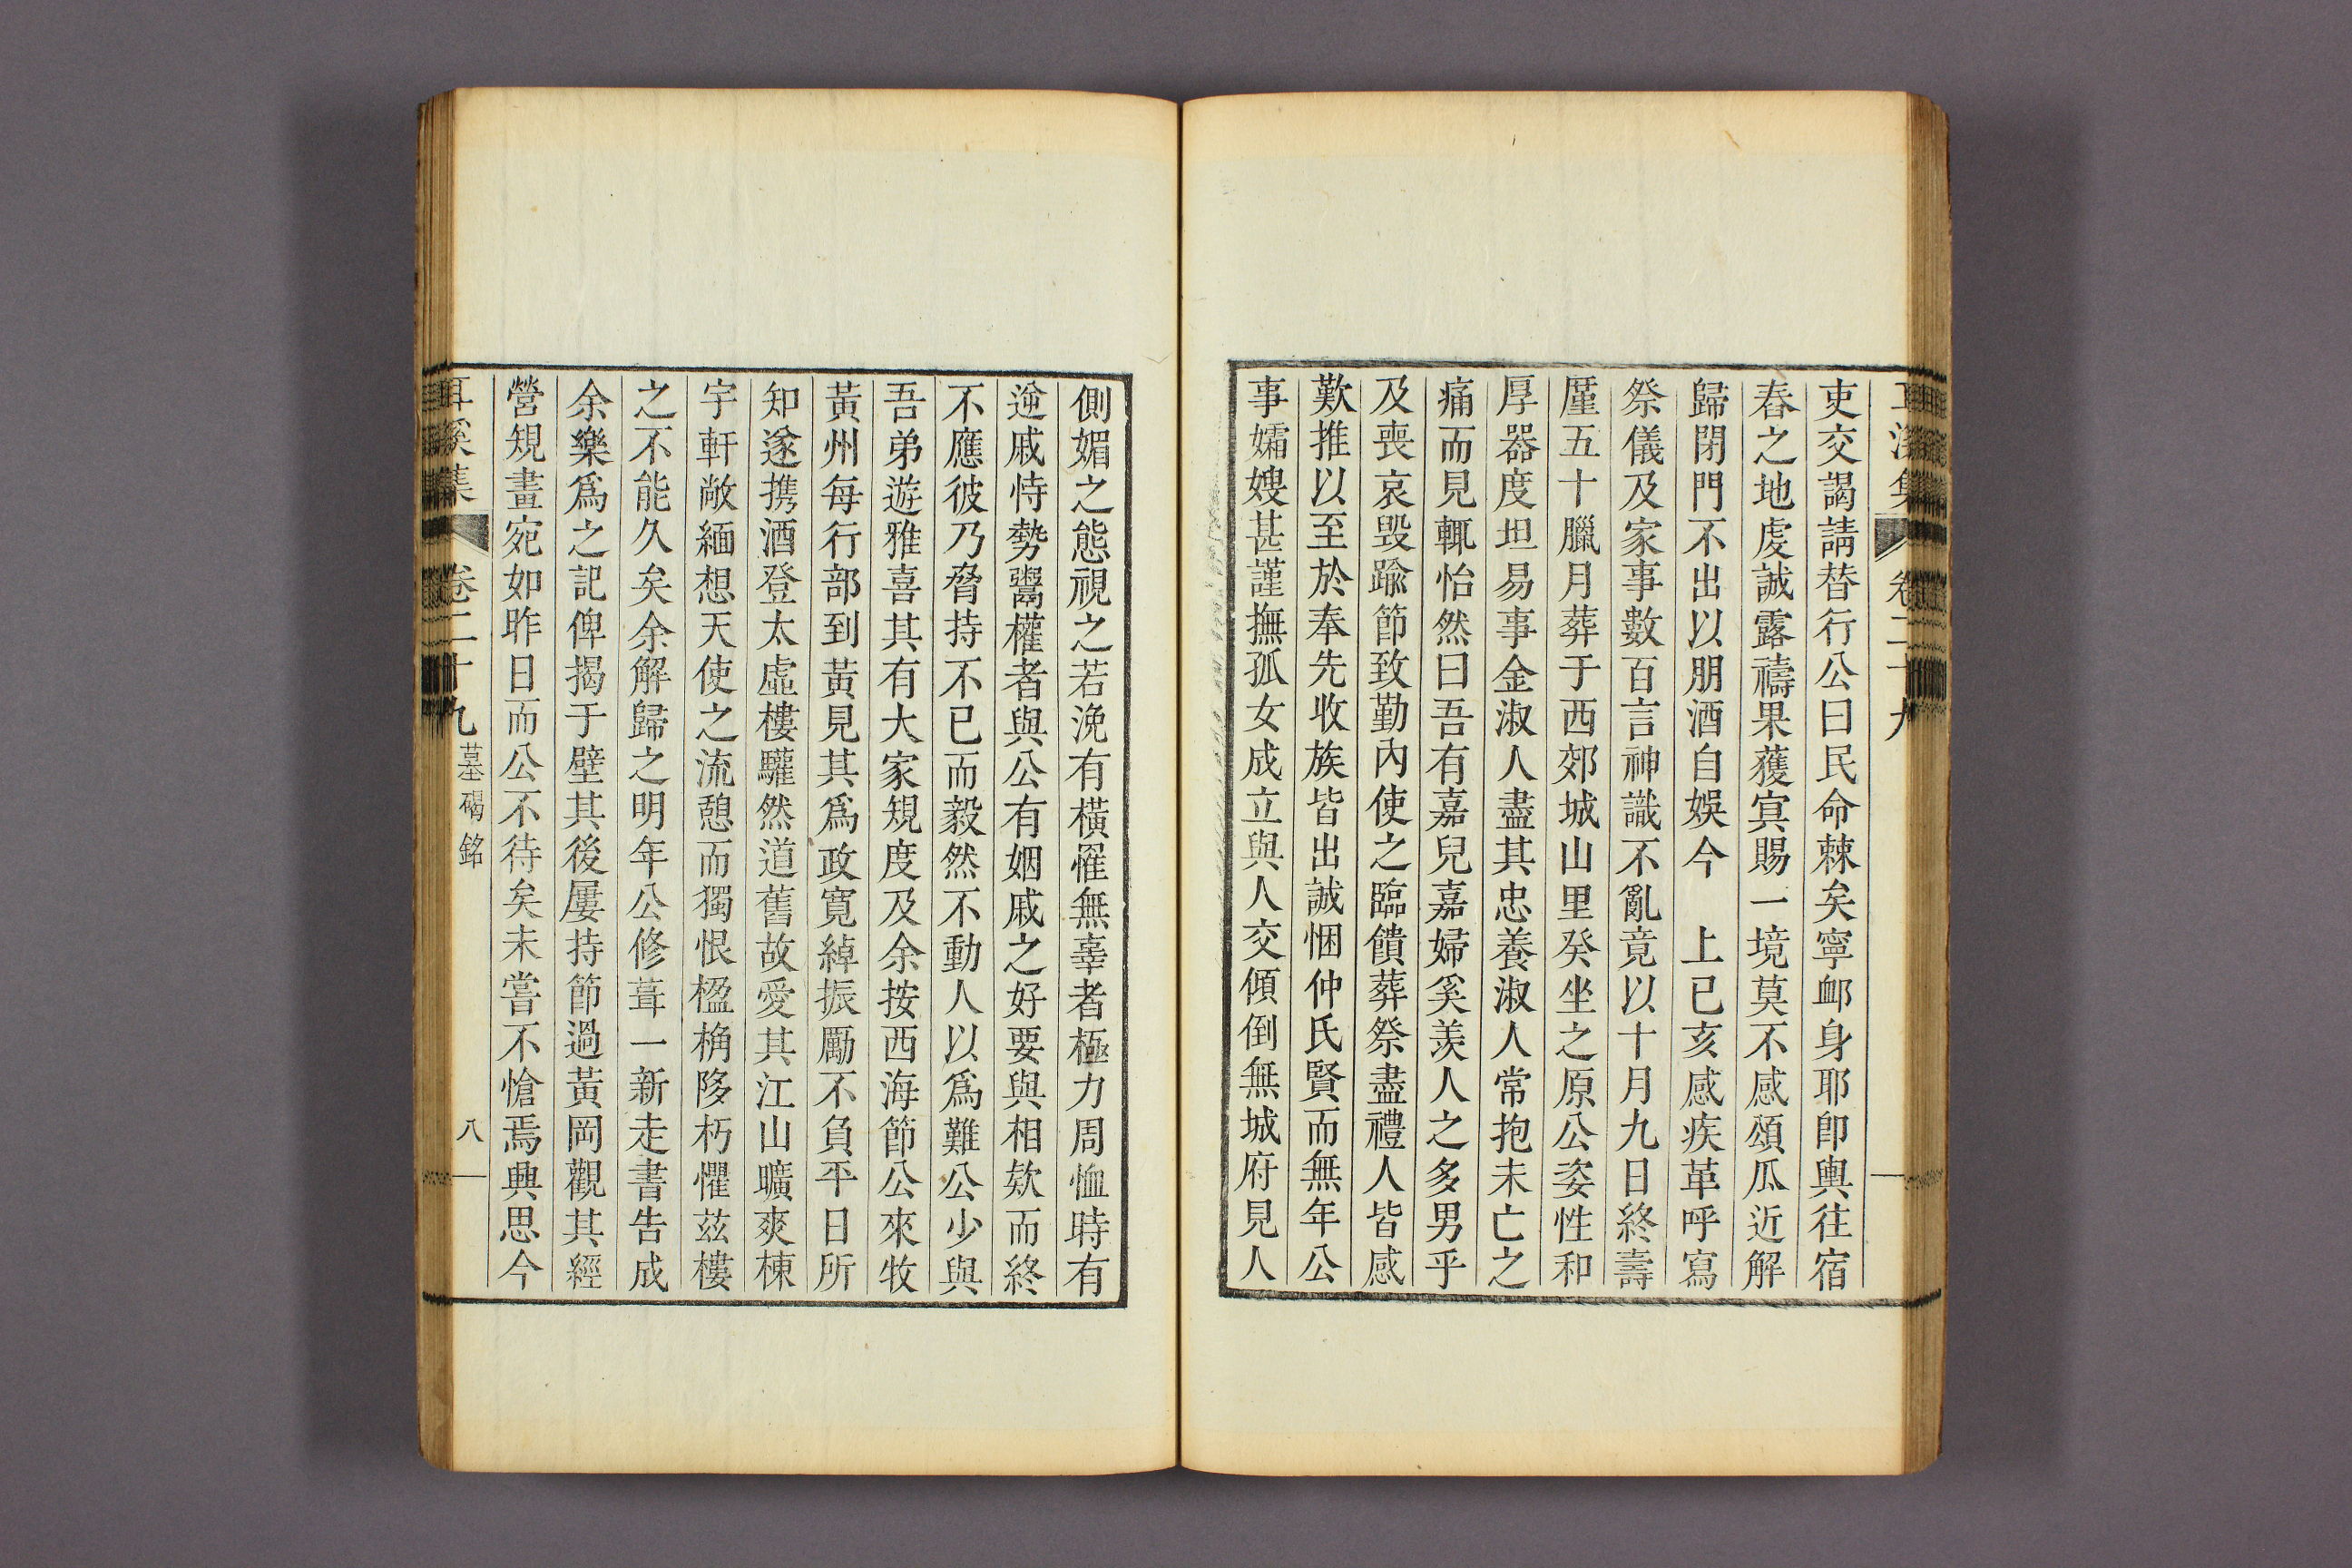 耳溪集 卷二十九
吏交謁請替行公曰民命棘矣寧卹身耶卽輿往宿
舂之地虔誠露禱果獲冥賜一境莫不感頌瓜近解
歸閉門不出以朋酒自娛今 上己亥感疾革呼寫
祭儀及家事數百言神識不亂竟以十月九日終壽
廑五十臘月葬于西郊城山里癸坐之原公姿性和
厚器度坦易事金淑人盡其忠養淑人常抱未亡之
痛而見輒怡然曰吾有嘉兒嘉婦奚羨人之多男乎
及喪哀毁踰節致勤內使之臨饋葬祭盡禮人皆感
歎推以至於奉先收族皆出誠悃仲氏賢而無年公
事孀嫂甚謹撫孤女成立與人交傾倒無城府見人
側媚之態視之若浼有橫罹無辜者極力周恤時有
逆戚恃勢鬻權者與公有姻戚之好要與相欵而終
不應彼乃脅持不已而毅然不動人以爲難公少與
吾弟遊雅喜其有大家規度及余按西海節公來牧
黃州每行部到黃見其爲政寬綽振勵不負平日所
知遂携酒登太虛樓驩然道舊故愛其江山曠爽棟
宇軒敞緬想天使之流憩而獨恨楹桷陊朽懼玆樓
之不能久矣余解歸之明年公修葺一新走書告成
余樂爲之記俾揭于壁其後屢持節過黃岡觀其經
營規畫宛如昨日而公不待矣未嘗不愴焉興思今
耳溪集 卷二十九 墓碣銘 八